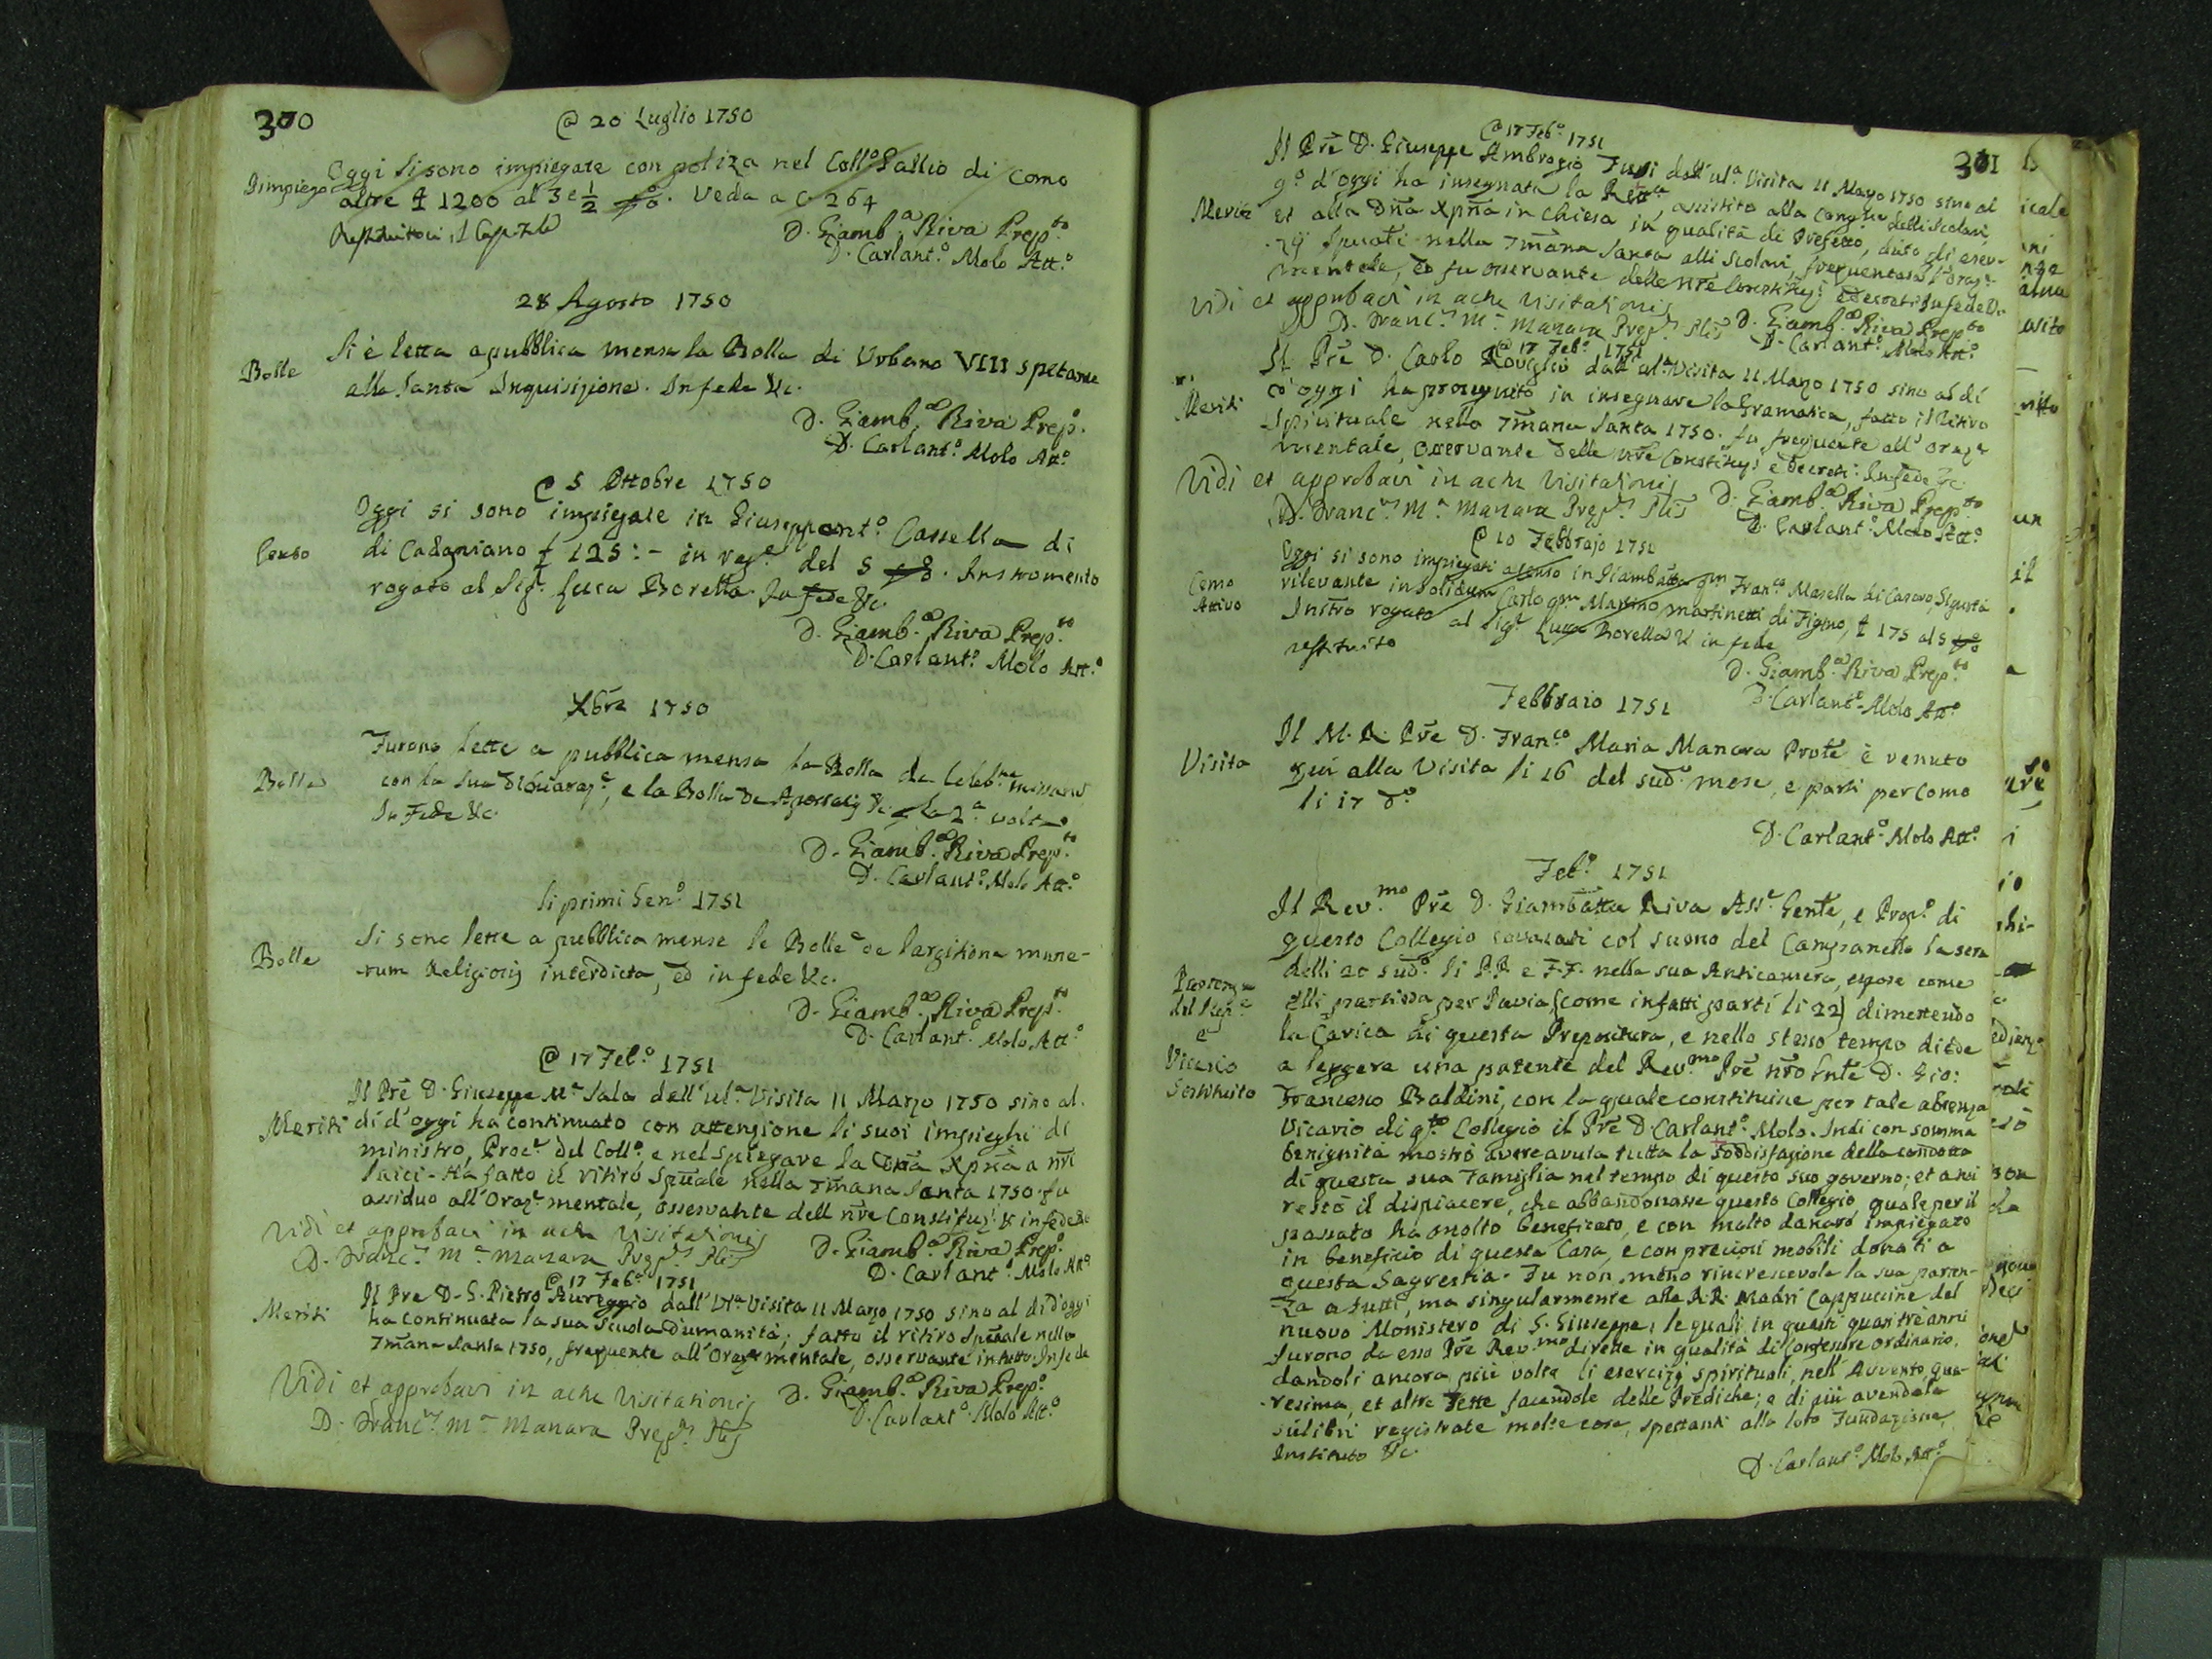 300
@ 20 Luglio 1750
Rimpiego
Oggi si sono impiegate con poliza nel Coll.º Gallio di Como
altre £ 1200 al 3 e ½ p%. Veda a c 264
Restituitoci il Cap.le
D. Giamb.a Riva Prep.to
D. Carlant.º Molo Att.º
28 Agosto 1750
Bolle
Si è letta a pubblica mensa la Bolla di Urbano VIII spetante
alla Santa Inquisizione. In fede &c.
D. Giamb.a Riva Prep.º
D. Carlant.º Molo Att.º
@ 5 Ottobre 1750
Censo
Oggi si sono impiegate in Giuseppant.º Cassella di
di Cadagniano £ 125:- in rag.e del 5 p%. Instromento
rogato al Sig.r Luca Borella. In fede &c.
D. Giamb.a Riva Prep.to
D. Carlant.º Molo Att.º
Xbre 1750
Bolle
Furono lette a pubblica mensa la Bolla de Celeb.ne missarum
con la sua dichiaraz.e, e la Bolla de Apostatis &c. la 2.a volta
In Fede &c.
D. Giamb.a Riva Prep.to
D. Carlant.º Molo Att.º
li primi Gen.º 1751
Bolle
Si sono lette a pubblica mensa le Bolle de largitione mune-
rum Religiosis interdicta, ed in fede &c.
D. Giamb.a Riva Prep.to
D. Carlant.º Molo Att.º
@ 17 Feb.º 1751
Il Prē D. Giuseppe M.a Sala dall' ul.a Visita 11 Marzo 1750 sino al
Meriti
dì d'oggi ha continuato con attenzione li suoi impieghi di
ministro, Proc.e del Coll.º e nel spiegare la Dnā Xpnā a nri
laici. Ha fatto il ritiro Spuale nella 7mana Santa 1750. fu
assiduo all'Oraz.e mentale, osservante dell nre Constituz.i &c in fede &c
Vidi et approbavi in actu Visitationis
D. Giamb.a Riva Prep.º
D. Franc.s M.a Manara Prep.s Plis
D. Carlant.º Molo Att.º
@ 17 Feb.º 1751
Meriti
Il Pre D. G. Pietro Aureggio dall' Ul.a Visita 11 Marzo 1750 sino al dì d'oggi
ha continuata la sua Scuola d'umanità; fatto il ritiro Spuale nella
7mana Santa 1750, frequente all'Oraz.e mentale, osservante in tutto. In fede
Vidi et approbavi in actu Visitationis
D. Giamb.a Riva Prep.º
D. Franc.s M.a Manara Prep.s Plis
D. Carlant.º Molo Att.º
301
@ 17 Feb.º 1751
Il Prē D. Giuseppe Ambrogio Fusi dall' ul.a Visita 11 Marzo 1750 sino al
Meriti
g.º d'oggi ha insegnata la Rett.ca, assistito alla Cong.ne delli Scolari,
et alla Dnā Xpnā in Chiesa in qualità di Prefetto, dato gli eser-
zij Spuali nella 7mana Santa alli Scolari, frequentata l'oraz.e
mentale, ed fu osservante delle nre Constituz.i e decreti. In fede &c
Vidi et approbavi in actu Visitationis
D. Franc.s M.a Manara Prep.s Plis
D. Giamb.a Riva Prep.to
D. Carlant.º Molo Att.º
@ 17 Feb.º 1751
Meriti
Il Prē D. Carlo Roviglio dall' ul.a Visita 11 Marzo 1750 sino al dì
d'oggi ha proseguito in insegnare la Gramatica, fatto il Ritiro
Spirituale nella 7mana Santa 1750. fu frequente all'oraz.e
mentale, osservante delle nre Constituz.i e decreti. In fede &c.
Vidi et approbavi in actu Visitationis
D. Franc.s M.a Manara Prep.s Plis
D. Giamb.a Riva Prep.to
D. Carlant.º Molo Att.º
@ 10 Febbrajo 1751
Censo
Attivo
Oggi si sono impiegati a censo in Giambatta qm Fran.co Masella di Casoro, Sigurtà
rilevante in solidum Carlo qm Martino Martinetti di Figino, £ 175 al 5 p%
Instro rogato al Sig.r Luca Borella & in fede
restituito
D. Giamb.a Riva Prep.to
D. Carlant.º Molo Att.º
Febbraio 1751
Visita
Il M. R. Pre D. Fran.co Maria Manara Prole è venuto
qui alla Visita li 16 del sud.º mese, e partì per Como
li 17 d.º
D. Carlant.º Molo Att.º
Feb.º 1751
Il Rev.mo Prē D. Giambatta Riva Ass.e Genle, e Prep.º di
questo Collegio convocati col suono del Campanello la sera
delli 20 sud.º li P.P. e F.F. nella sua Anticamera, espose come
Partenza
del Prep.to
e
Vicario
Sostituito
elli partiva per Pavia, (come infatti partì li 22) dimettendo
la Carica di questa Prepositura, e nello stesso tempo diede
a leggere una patente del Rev.mo Prē nrō Gnle D. Gio:
Francesco Baldini, con la quale constituisce per tale absenza
Vicario di q.to Collegio il Prē D. Carlant.º Molo. Indi con somma
benignità mostrò avere avuta tutta la soddisfazione della condotta
di questa sua Famiglia nel tempo di questo suo governo; et a noi
restò il dispiacere, che abbandonasse questo Collegio, quale per il
passato ha molto beneficato, e con molto danaro impiegato
in beneficio di questa Casa, e con preciosi mobili donati a
questa Sagrestia. Fu non meno rincrescevole la sua parten-
za a tutti, ma singularmente alle R.R. Madri Cappuccine del
nuovo Monistero di S. Giuseppe; le quali in questi quasi trè anni
furono da esso Prē Rev.mo dirette in qualità di Confessore ordinario,
dandoli ancora più volte li esercizij spirituali, nell'Avvento, qua-
resima, et altre Feste facendole delle Prediche; e di più avendole
sù libri registrate molte cose, spettanti alla loro Fundazione,
Instituto &c.
D. Carlant.º Molo Att.º